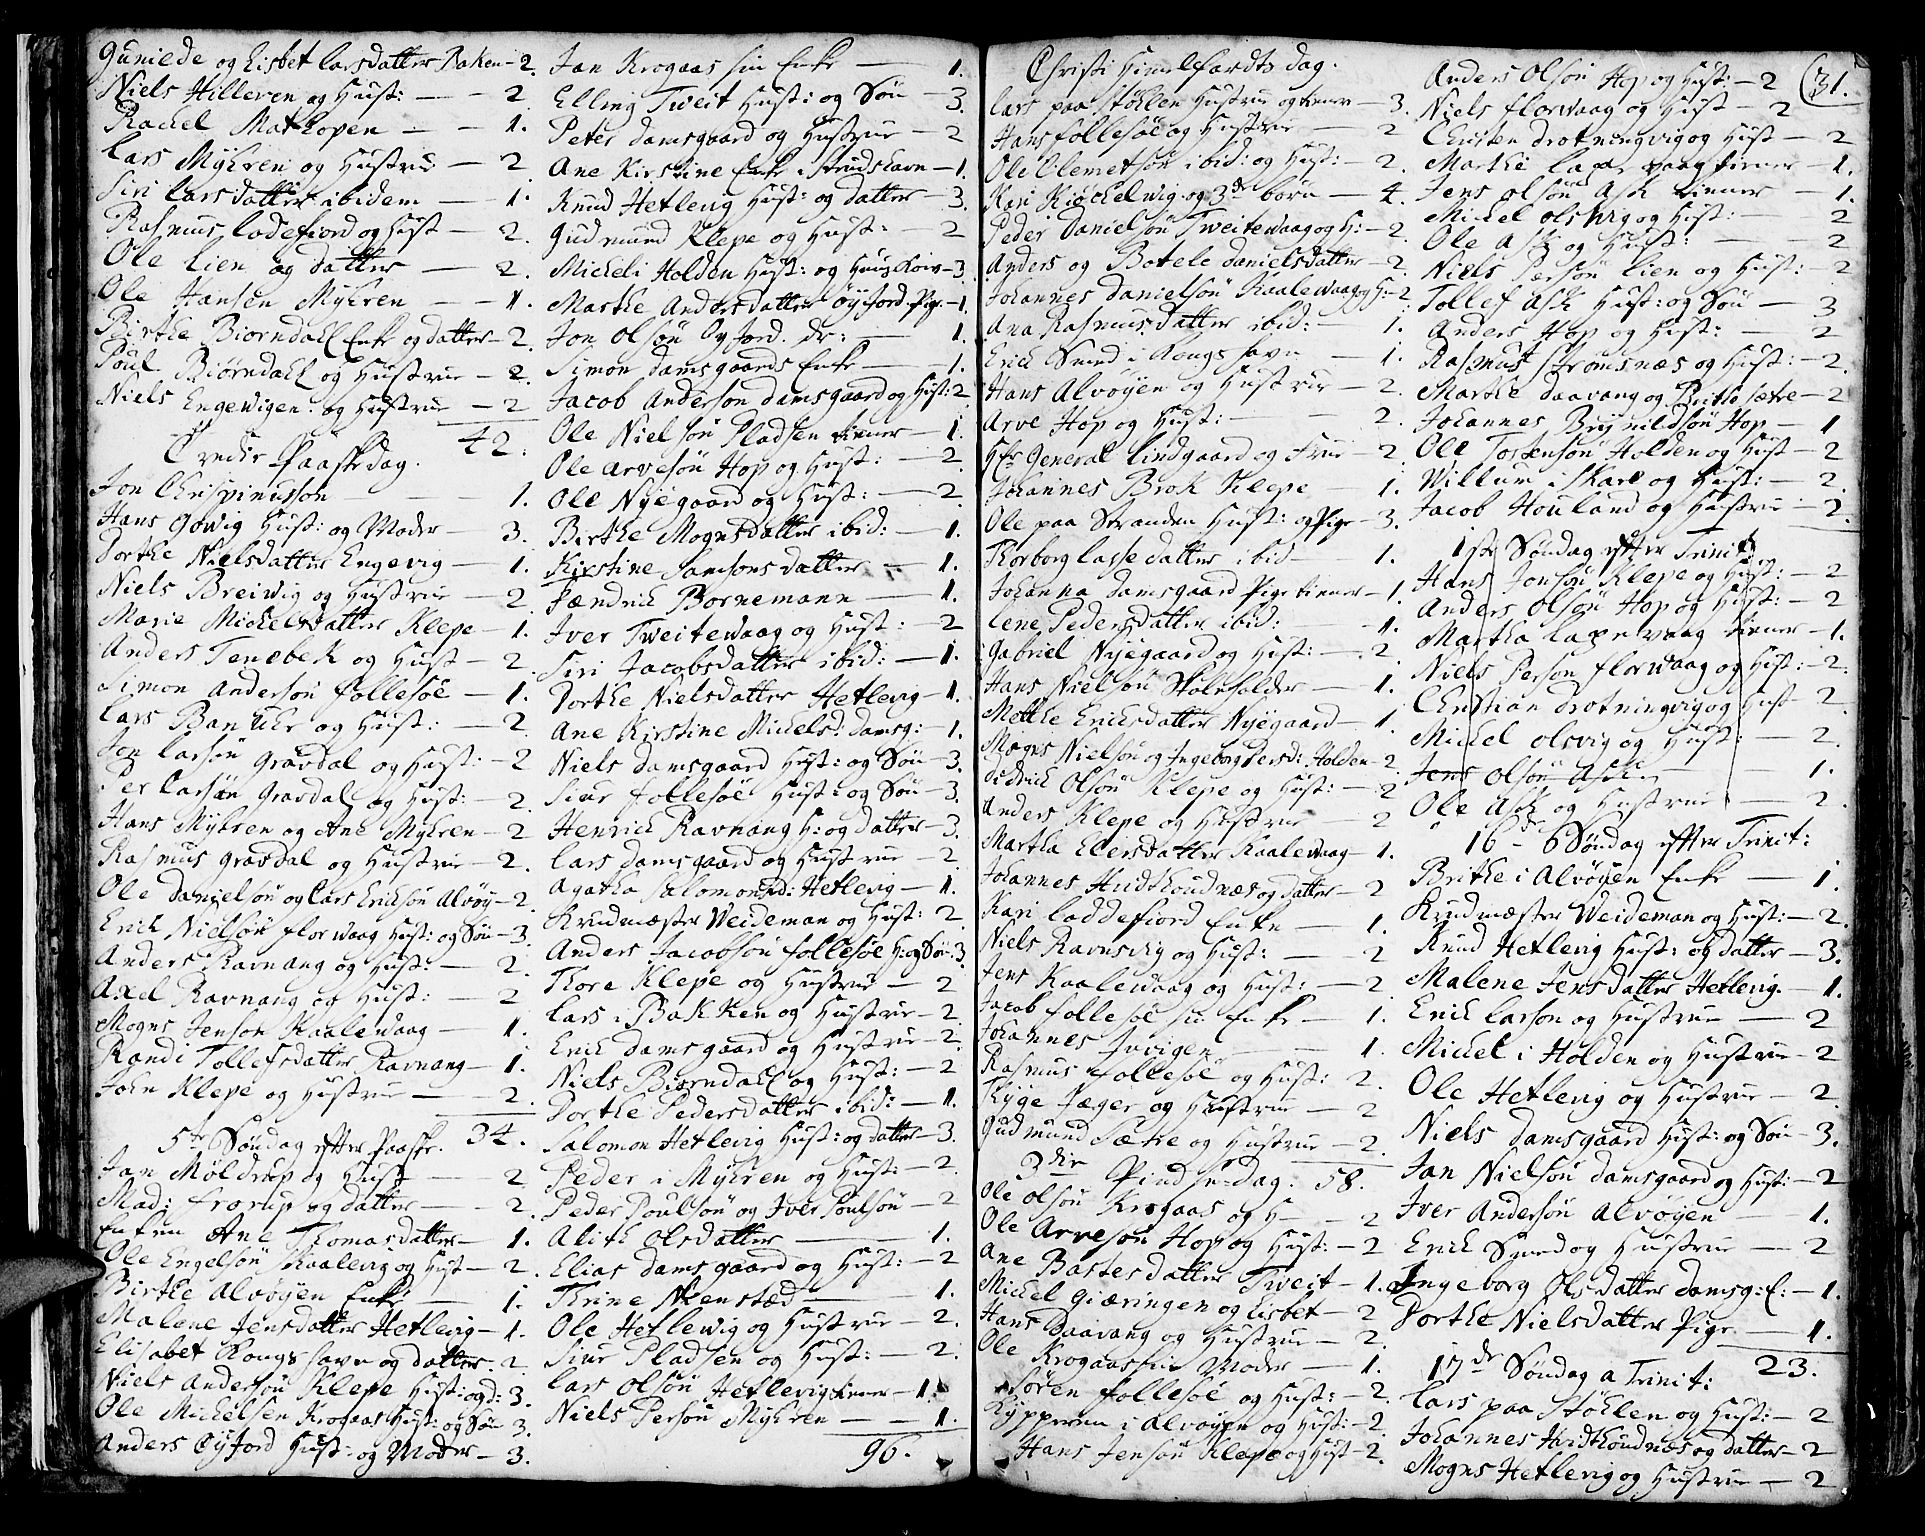 Gunilde og Lisbet Larsdatter Baken - 2.
Niels Hilleren og Hust: - - 2
Rachel Mathopen - - 1.
Lars Mÿhren og Hustrue - 2
Siri Larsdatter ibidem - 1.
Rasmus Ladefiord og Hust - 2.
Ole Lien og datter - 2.
Ole Hansen Mÿhren - - 1.
Birthe Biorndahl Enke og datter - 2.
Poul Biørndahl og Hustrue - 2.
Niels Engewigen: og Hustrue - 2
42.
Anden Paaskedag.
Jon Chrispinusson - 1.
Hans Gowig Hust: og Moder - 3.
Dorthe Nielsdatter Engevig - 1.
Niels Breiwig og Hustrue - 2.
Marie Michelsdatter Klepe - 1.
Anders Tenebek og Hust - 2
Simon Anderson Follesøe - 1.
Lars Bankchr og Hust: - 2
Jon Larsøn Gravdal og Hust: - 2
Per Larsøn Gravdal og Hust: - 2.
Hans Mÿhren og Ane Mÿhren - 2
Rasmus Gravdal og Hustrue - 2.
Ole Danielsøn og Lars Ericksøn Alvøy - 2.
Erich Nielsøn Florwaag Hust: og Søn - 3.
Anders Ravnang og Hust: - 2.
Axel Ravnang og Hust: - 2
Mogns Jenson Kaalewaag - 1.
Randi Tollefsdatter Ravnang - 1.
John Klepe og Hustrue - 2.
34.
5te Søndag efter Paaske.
Jan Møldrup og Hust - 2
Mad: Frorup og datter - 2.
Enken Ane Thomasdatter - 1.
Ole Engelsøn Skaalevig og Hust - 2.
Birthe Alvøyen Enke - 1.
Malene Jensdatter Hetlevig - 1.
Elisabet Kongshavn og datter - 2
Niels Andersøn Klepe Hust: og d: 3.
Ole Michelsen Krogaas Hust: og Søn 3.
Anders Oyjord Hust: og Moder - 3.
Jan Krogaas sin Enke - 1.
Elling Tweit Hust: og Søn - 3.
Peter Damsgaard og Hustrue - 2
Ane Kirstine Enke i Strudshavn - 1.
Knud Hetlevig Hust: og datter - 3.
Gudmund Klepe og Hust: - 2
Micheli Holden Hust: og Huuskone - 3.
Marthe Andersdatter Øyjord Pige - 1.
Jon Olsøn Oyjord. dr: - 1.
Simon Damsgaards Enke - 1.
Jacob Anderson Damsgaard og Hust: 2
Ole Nielsøn Pladsen tiener - 1.
Ole Arvesøn Hop og Hust: - 2.
Ole Nyegaard og Hust: - 2
Birthe Mognsdatter ibid: - 1.
Kirstine Samsonsdatter - 1.
Hændrich Bornemann - 1.
Iver Tweitewaag og Hust: - 2
Siri Jacobsdatter ibid: - 1.
Dorthe Nielsdatter Hetlevig - 1.
Ane Kirstine Michelsd: Damsg: - 1.
Niels Damsgaard Hust: og Søn - 3.
Siur Follesøe Hust: og Søn - 3.
Henrich Ravnang H: og datter - 3.
Lars Damsgaard og Hustrue - 2
Agatha Salomonsd: Hetlevig - 1.
Krudmæster Weideman og Hust: 2
Anders Jacobsøn Follesøe H: og Søn 3
Thore Klepe og Hustrue - 2
Lars i Bakken og Hustrue - 2
Erich Damsgaard og Hustrue - 2.
Niels Biørndahl og Hust: - 2
Dorthe Pedersdatter ibid: - 1.
Salomon Hetlevig Hust: og datter - 3.
Peder i Mÿhren og Hust: - 2.
Peder Poulsøn og Iver Poulsøn - 2
Alith Olsdatter - 1.
Elias Damsgaard og Hust: - 2
Thrine Steenstæd - 1.
Ole Hetlewig og Hustrue - 2.
Siur Pladsen og Hust: - 2.
Lars Olsøn Hetlevig tiener - 1.
Niels Persøn Mÿhren - 1.
96.
Christi Himelfardts dag.
Lars paa Støhlen Hustrue og tiener - 3.
Hans Follesøe og Hustrue - 2
Ole Clemetsøn ibid: og Hust: - 2.
Kari Kiøchelwig og 3de børn - 4.
Peder Danielsøn Tweitewaag og H: - 2.
Anders og Botele Danielsdatter - 2.
Johannes Danielsøn Kaalewaag og H: - 2
Ana Rasmusdatter ibid: - 1.
Erich Smed i Kongshavn - 1.
Hans Alvøyen og Hustrue - 2.
Arve Hop og Hust: - 2.
Hr General Lindgaard og Frue - 2.
Johannes Brok Klepe 1.
Ole paa Stranden Hust: og Pige - 3.
Thorborg Lassedatter ibid - 1.
Johanna Damsgaard Pige tiener - 1.
Lene Pedersdatter ibid: - 1.
Gabriel Nyegaard og Hust: - 2
Hans Nielsøn Skoleholder - 1.
Metthe Erichsdatter Nyegaard - 1.
Mogns Nielsøn og Ingeborg Persd: Holden - 2.
Didrich Olsøn Klepe og Hust: - 2
Anders Klepe og Hustrue - 2
Martha Elersdatter Kaalewaag - 1.
Johannes Hvidthoudnæs og datter - 2
Kari Laddefiord Enke - 1.
Niels Ravnsvig og Hust: - 2
Jens Kaalewaag og Hust: - 2
Jacob Follesøe sin Enke - 1.
Johannes Jvigen - 1.
Rasmus Follesøe og Hust: 2
Thÿge Jæger og Hustrue - 2
Gudmund Sætre og Hustrue - 2.
3die Pindse-dag. 58.
Ole Olsøn Krogaas og H - 2
Ole Arvesøn Hop og Hust: - 2
Ane Bastesdatter Tweit - 1.
Michel Giæringen og Lisbet - 2
Hans Daavang og Hustrue - 2.
Ole Krogaas sin Moder - 1.
Søren Follesøe og Hust: - 2.
Kypperen i Alvøyen og Hust: - 2.
Hans Jensøn Klepe og Hust - 2.
(31.
Anders Olsøn Hop og Hust: - 2
Niels Florwaag og Hust - 2
Christen Drotningvig og Hust - 2
Marthe Laxewaag tiener - 1.
Jens Olsøn Ask tiener - 1.
Michel Olsvig og Hust: - 2
Ole Ask og Hust: - 2
Niels Persøn Lien og Hust: - 2
Tollef Ask Hust: og Søn - 3
Anders Hop og Hust: - 2
Rasmus Strømsnæs og Hust: - 2.
Marthe Daavang og Brithe Sætre - 2
Johannes Brÿnildsøn Hop - 1
Ole Tostensøn Holden og Hust - 2
Willum i Skare og Hust: - 2.
Jacob Houland og Hustrue - 2.
1ste Søndag efter Trinit
Hans Jonsøn Klepe og Hust: - 2
Anders Olsøn Hop og Hust: - 2
Martha Laxewaag tiener - 1.
Niels Persøn Florwaag og Hust: - 2.
Christian Drotningvig og Hust 2
Michel Olsvig og Hust: - 2.
Jens Olsøn Ask - 1.
Ole Ask og Hustrue - 2.
16de Søndag efter Trinit:
Brithe i Alvøyen Enke - 1.
Krudmæster Weideman og Hust: - 2.
Knud Hetlevig Hust: og datter - 3.
Malene Jensdatter Hetlevig. - 1.
Erich Larson og Hustrue - 2
Michel i Holden og Hustrue - 2
Ole Hetlevig og Hustrue - 2.
Niels Damsgaard Hust: og Søn - 3.
Jan Nielsøn Damsgaard og Hust: - 2
Iver Andersøn Alvøyen - 1.
Erich Smed og Hustrue - 2
Ingeborg Olsdatter Damsg: E: - 1.
Dorthe Nielsdatter Pige - 1.
17de Søndag a Trinit: 23.
Lars paa Støhlen og Hust: - 2
Johannes Hvidthoudnæs og datter - 2
Mogns Hetlevig og Hustrue - 2